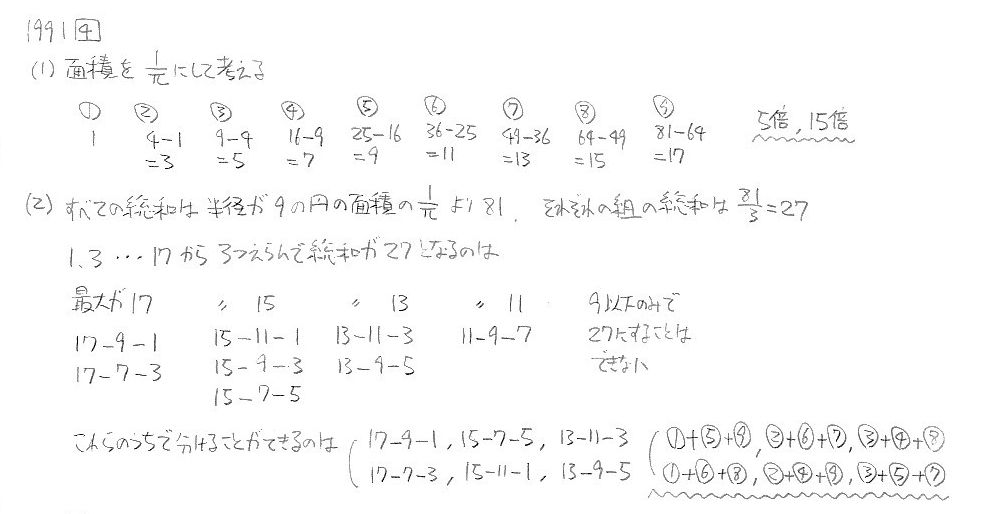 1991 4
(1) 面積を 1/π にして考える
① ② ③ ④ ⑤ ⑥ ⑦ ⑧ ⑨
1 4-1 9-4 16-9 25-16 36-25 49-36 64-49 81-64 5倍, 15倍
=3 =5 =7 =9 =11 =13 =15 =17
(2) すべての総和は 半径が9の円の面積の 1/π より 81. それぞれの組の総和は 81/3=27
1, 3 … 17 から 3つえらんで総和が27となるのは
最大が17 〃 15 〃 13 〃 11 9以下のみで
17-9-1 15-11-1 13-11-3 11-9-7 27にすることは
17-7-3 15-9-3 13-9-5 できない
15-7-5
これらのうちで分けることができるのは ( 17-9-1, 15-7-5, 13-11-3 ( ①+⑤+⑨, ②+⑥+⑦, ③+④+⑧
17-7-3, 15-11-1, 13-9-5 ①+⑥+⑧, ②+④+⑨, ③+⑤+⑦